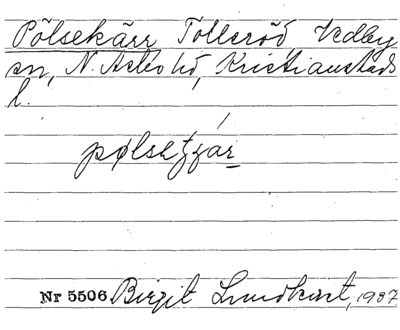 Pölsekärr Tolleröd Vedby
sn, N. Åsbo hd, Kristianstads
l.
Nr 5506 Birgit Lundkvist, 1937